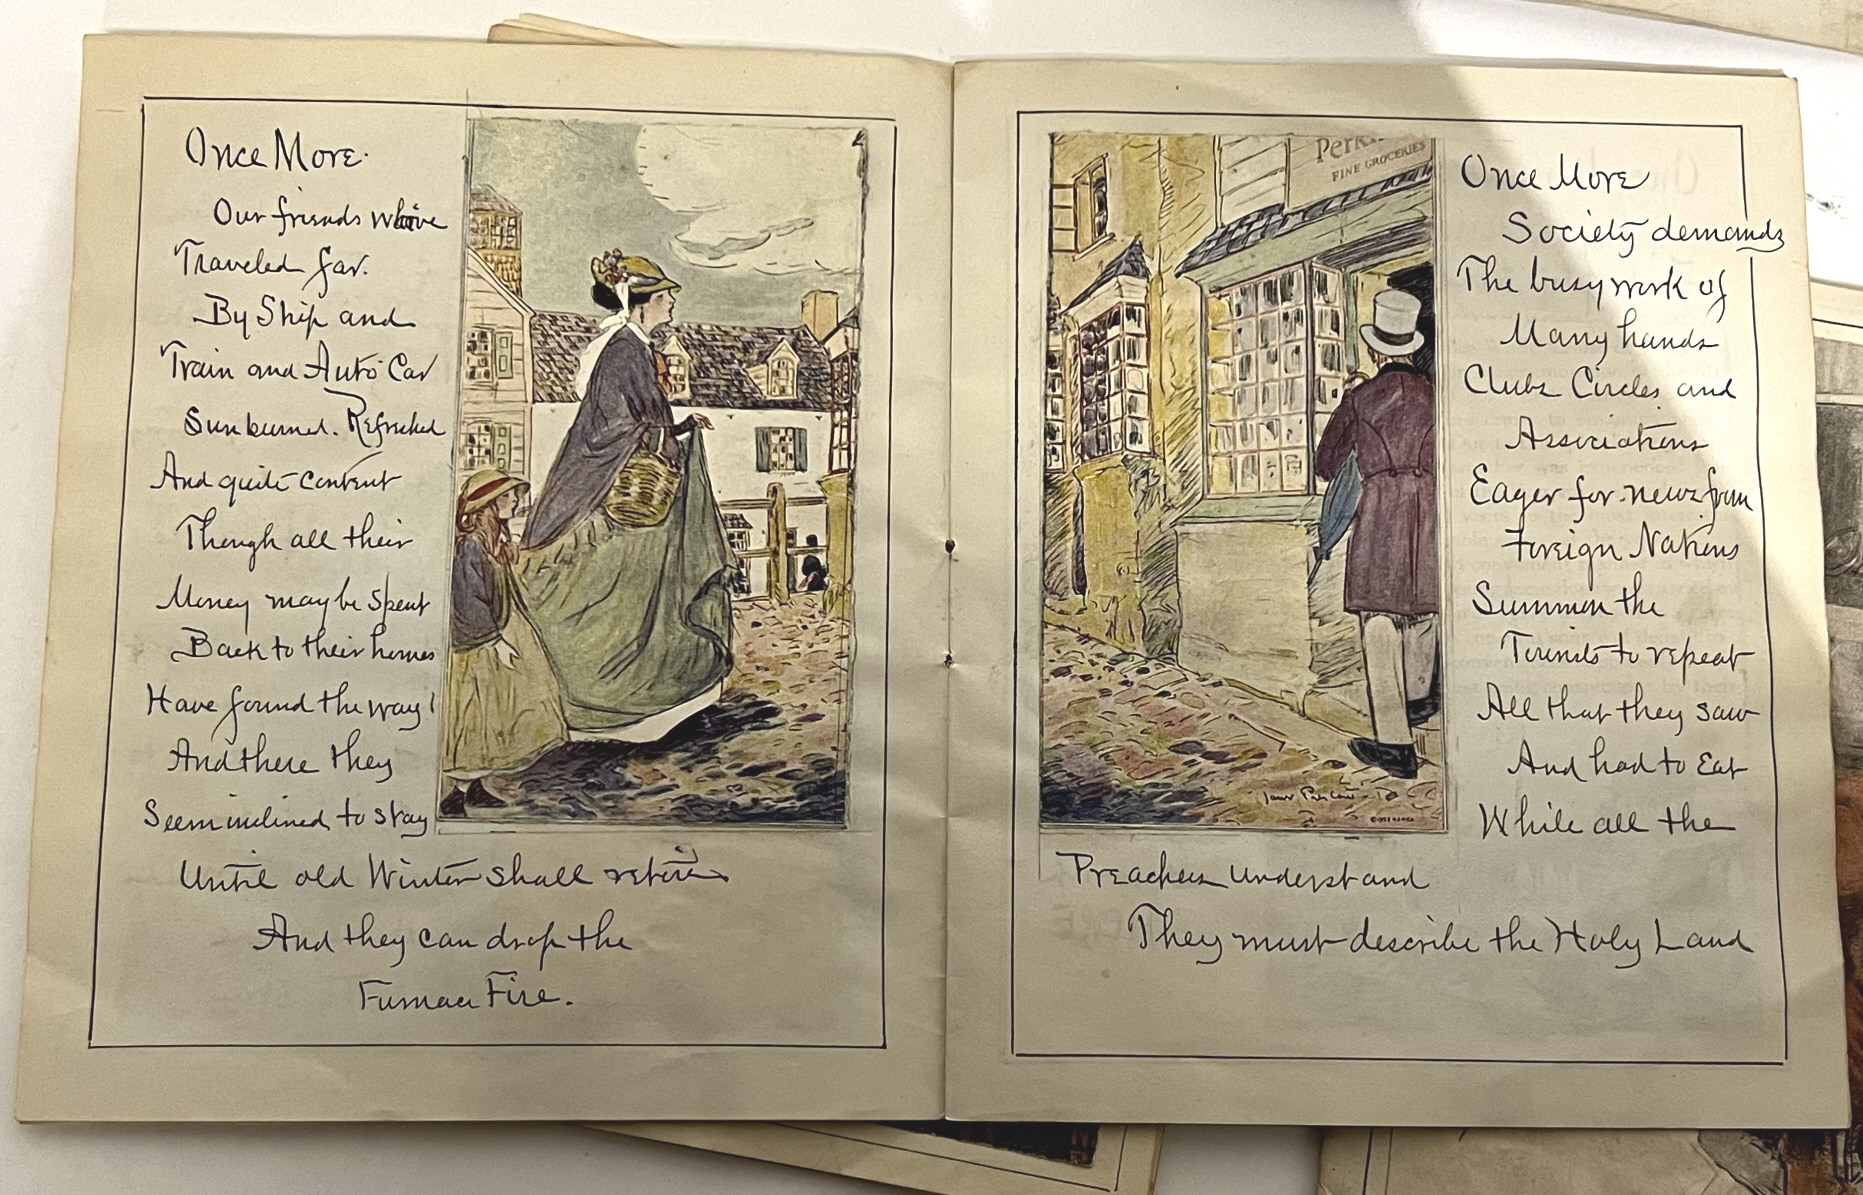 Once More.
Our friends who've
Traveled far.
By Ship and
Train and Auto Car
Sunburned. Refreshed
And quite content
Though all their
Money may be spent
Back to their homes
Have found the way!
And there they
Seem inclined to stay
Until old Winter shall retire
And they can drop the
Furnace Fire.
Perk
FINE GROCERIES
Once More
Society demands
The busy work of
Many hands
Clubs Circles and
Associations
Eager for news from
Foreign Nations
Summon the
Tourists to repeat
All that they saw
And had to Eat
While all the
Preachers understand
They must describe the Holy Land